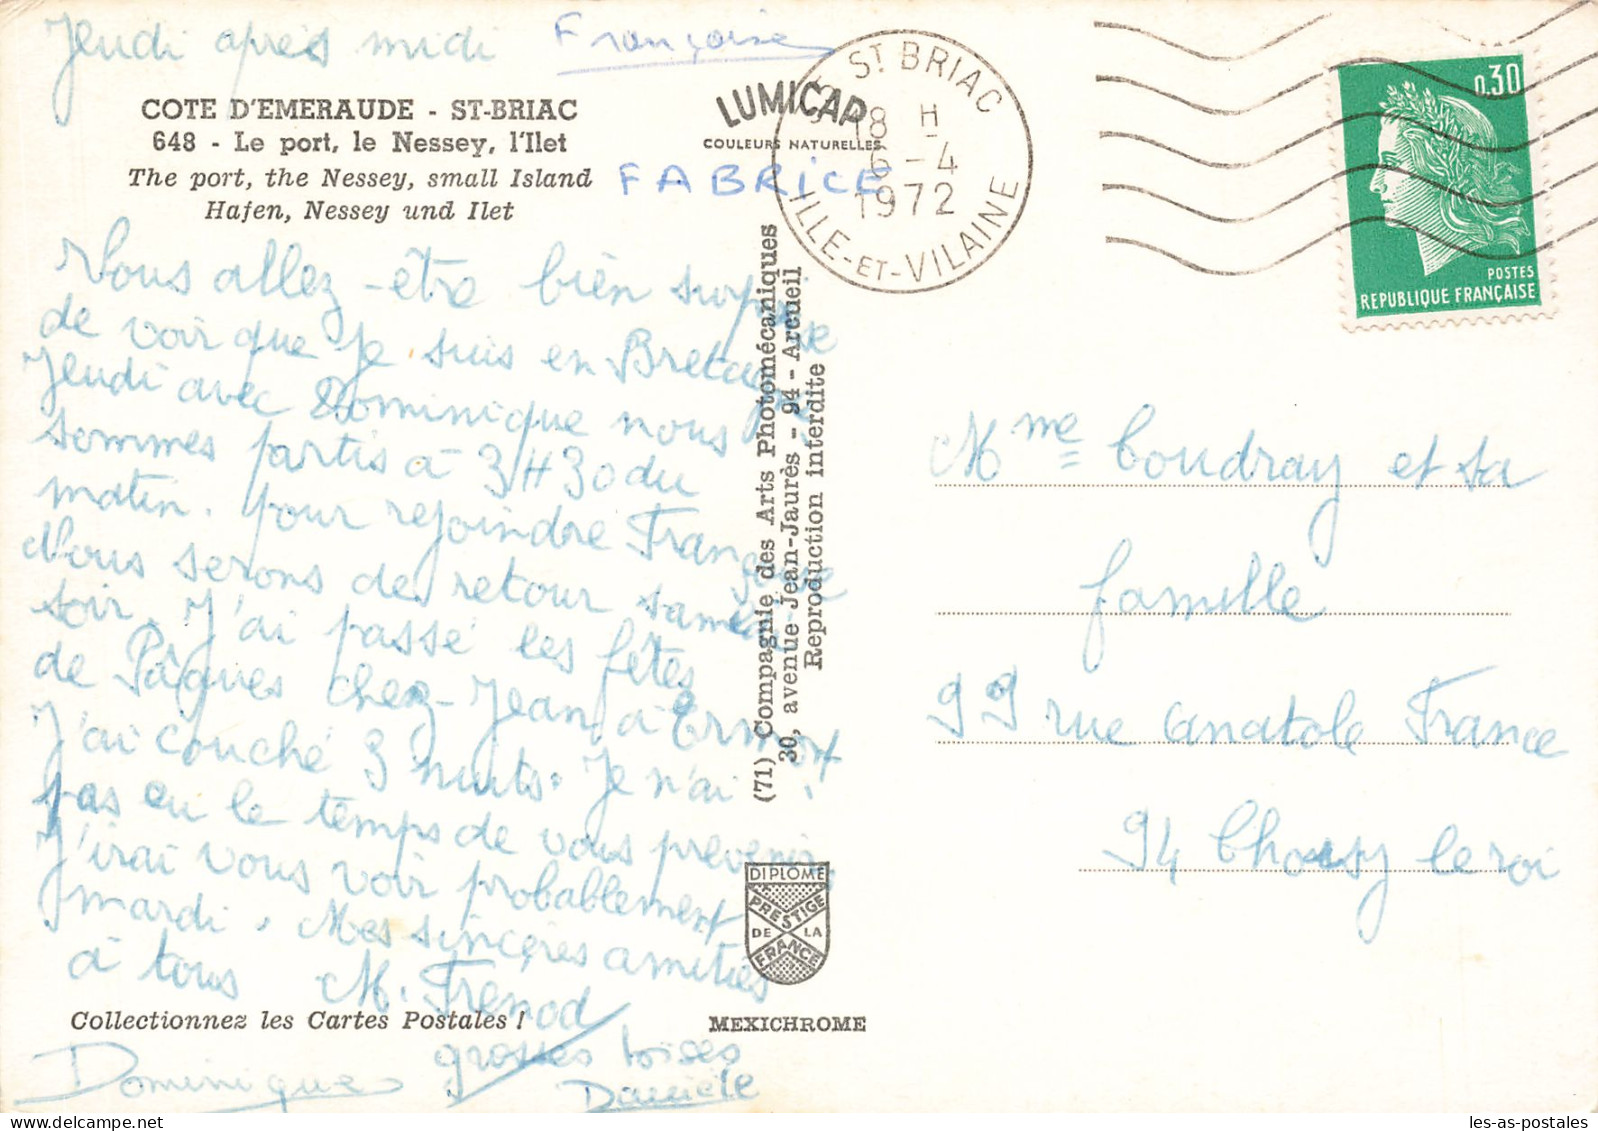 Jeudi après midi Françoise
COTE D'EMERAUDE - ST-BRIAC
648 - Le port, le Nessey, l'Ilet
The port, the Nessey, small Island
Hafen, Nessey und Ilet
LUMICAP
COULEURS NATURELLES
FABRICE
Vous allez-être bien surprise
de voir que je suis en Bretagne
Jeudi avec Dominique nous
sommes partis à 3H30 du
matin. pour rejoindre Françoise
Nous serons de retour samedi
soir. J'ai passé les fêtes
de Pâques chez Jean à Ermont
J'ai couché 3 nuits. Je n'ai
pas eu le temps de vous prévenir,
J'irai vous voir probablement
mardi. Mes sincères amitiés
à tous M. Frenod
Collectionnez les Cartes Postales !
grosses bises
Dominique Danièle
(71) Compagnie des Arts Photomécaniques
30, avenue Jean-Jaurès - 94 - Arcueil
Reproduction interdite
DIPLOME
PRESTIGE
DE LA
FRANCE
MEXICHROME
ST BRIAC
18 H
6-4
1972
ILLE-ET-VILAINE
0,30
POSTES
REPUBLIQUE FRANÇAISE
Mme Coudray et sa
famille
99 rue Anatole France
94 Choisy le roi
les-as-postales